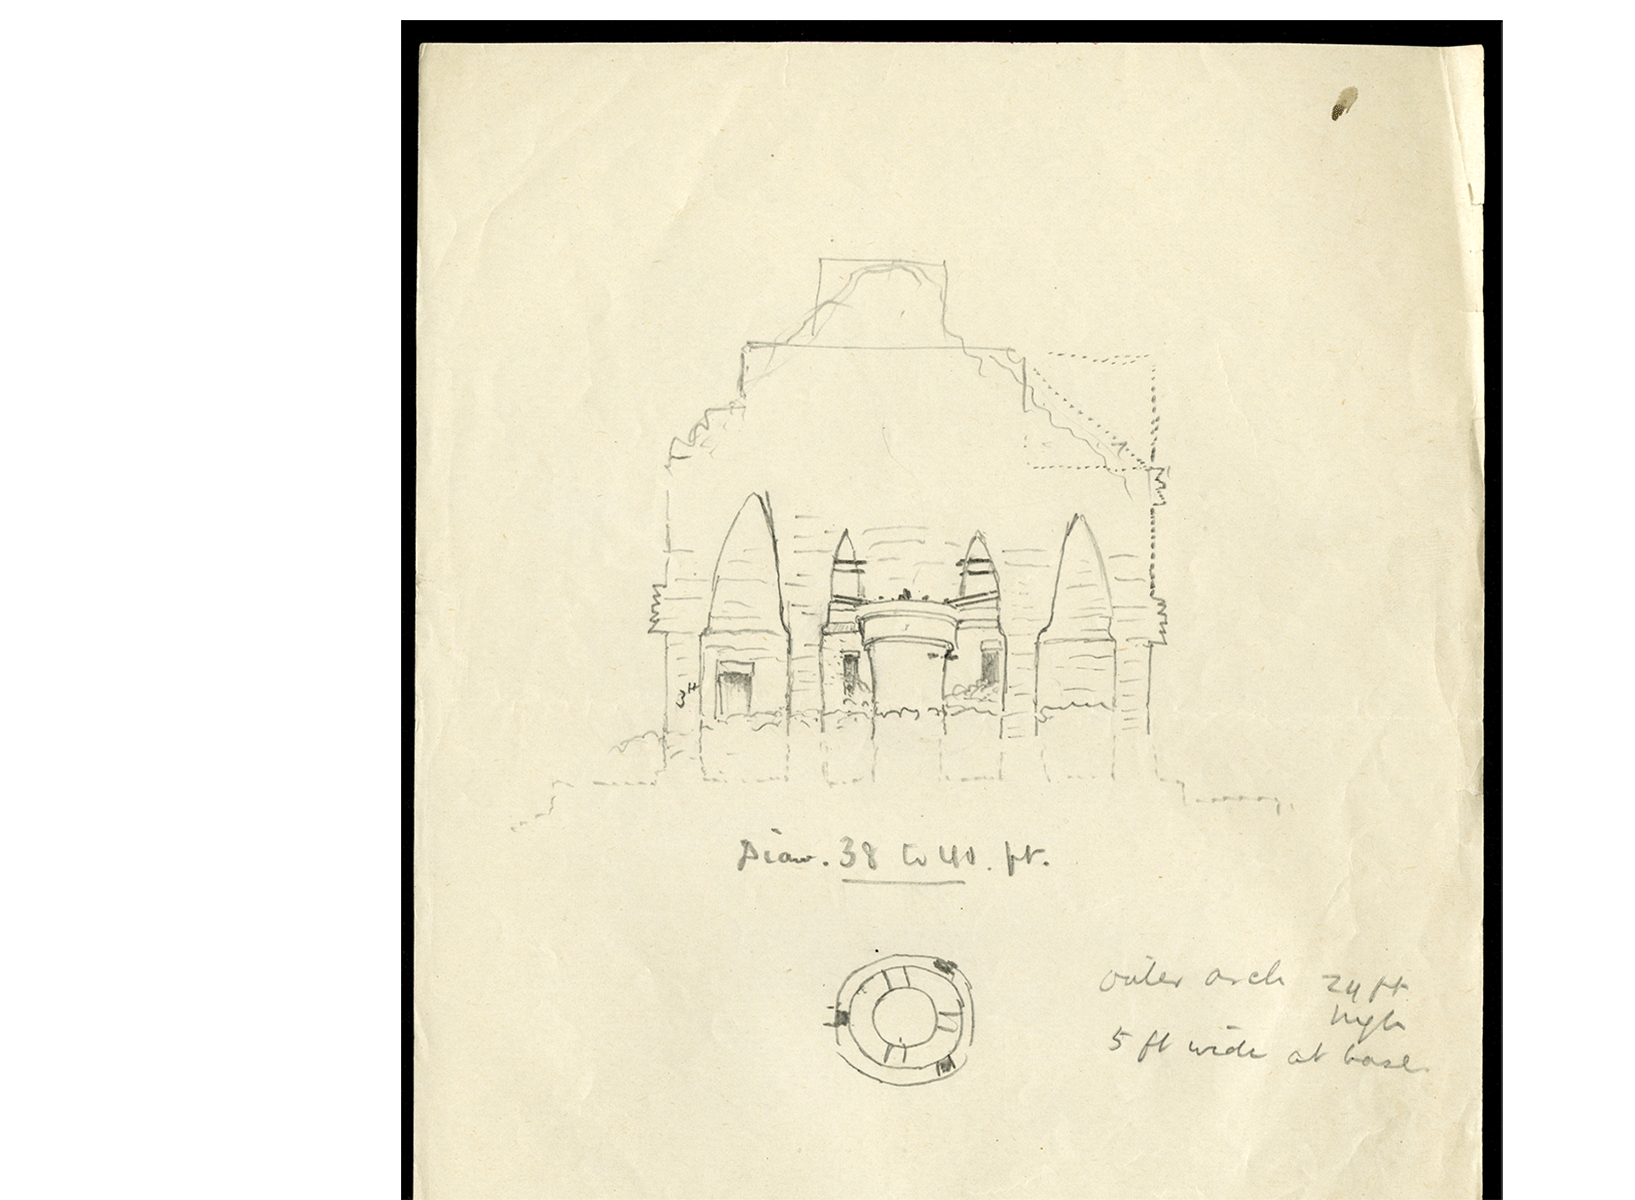 Diam. 38 to 40. ft.
outer arch 24 ft
high
5 ft wide at base.